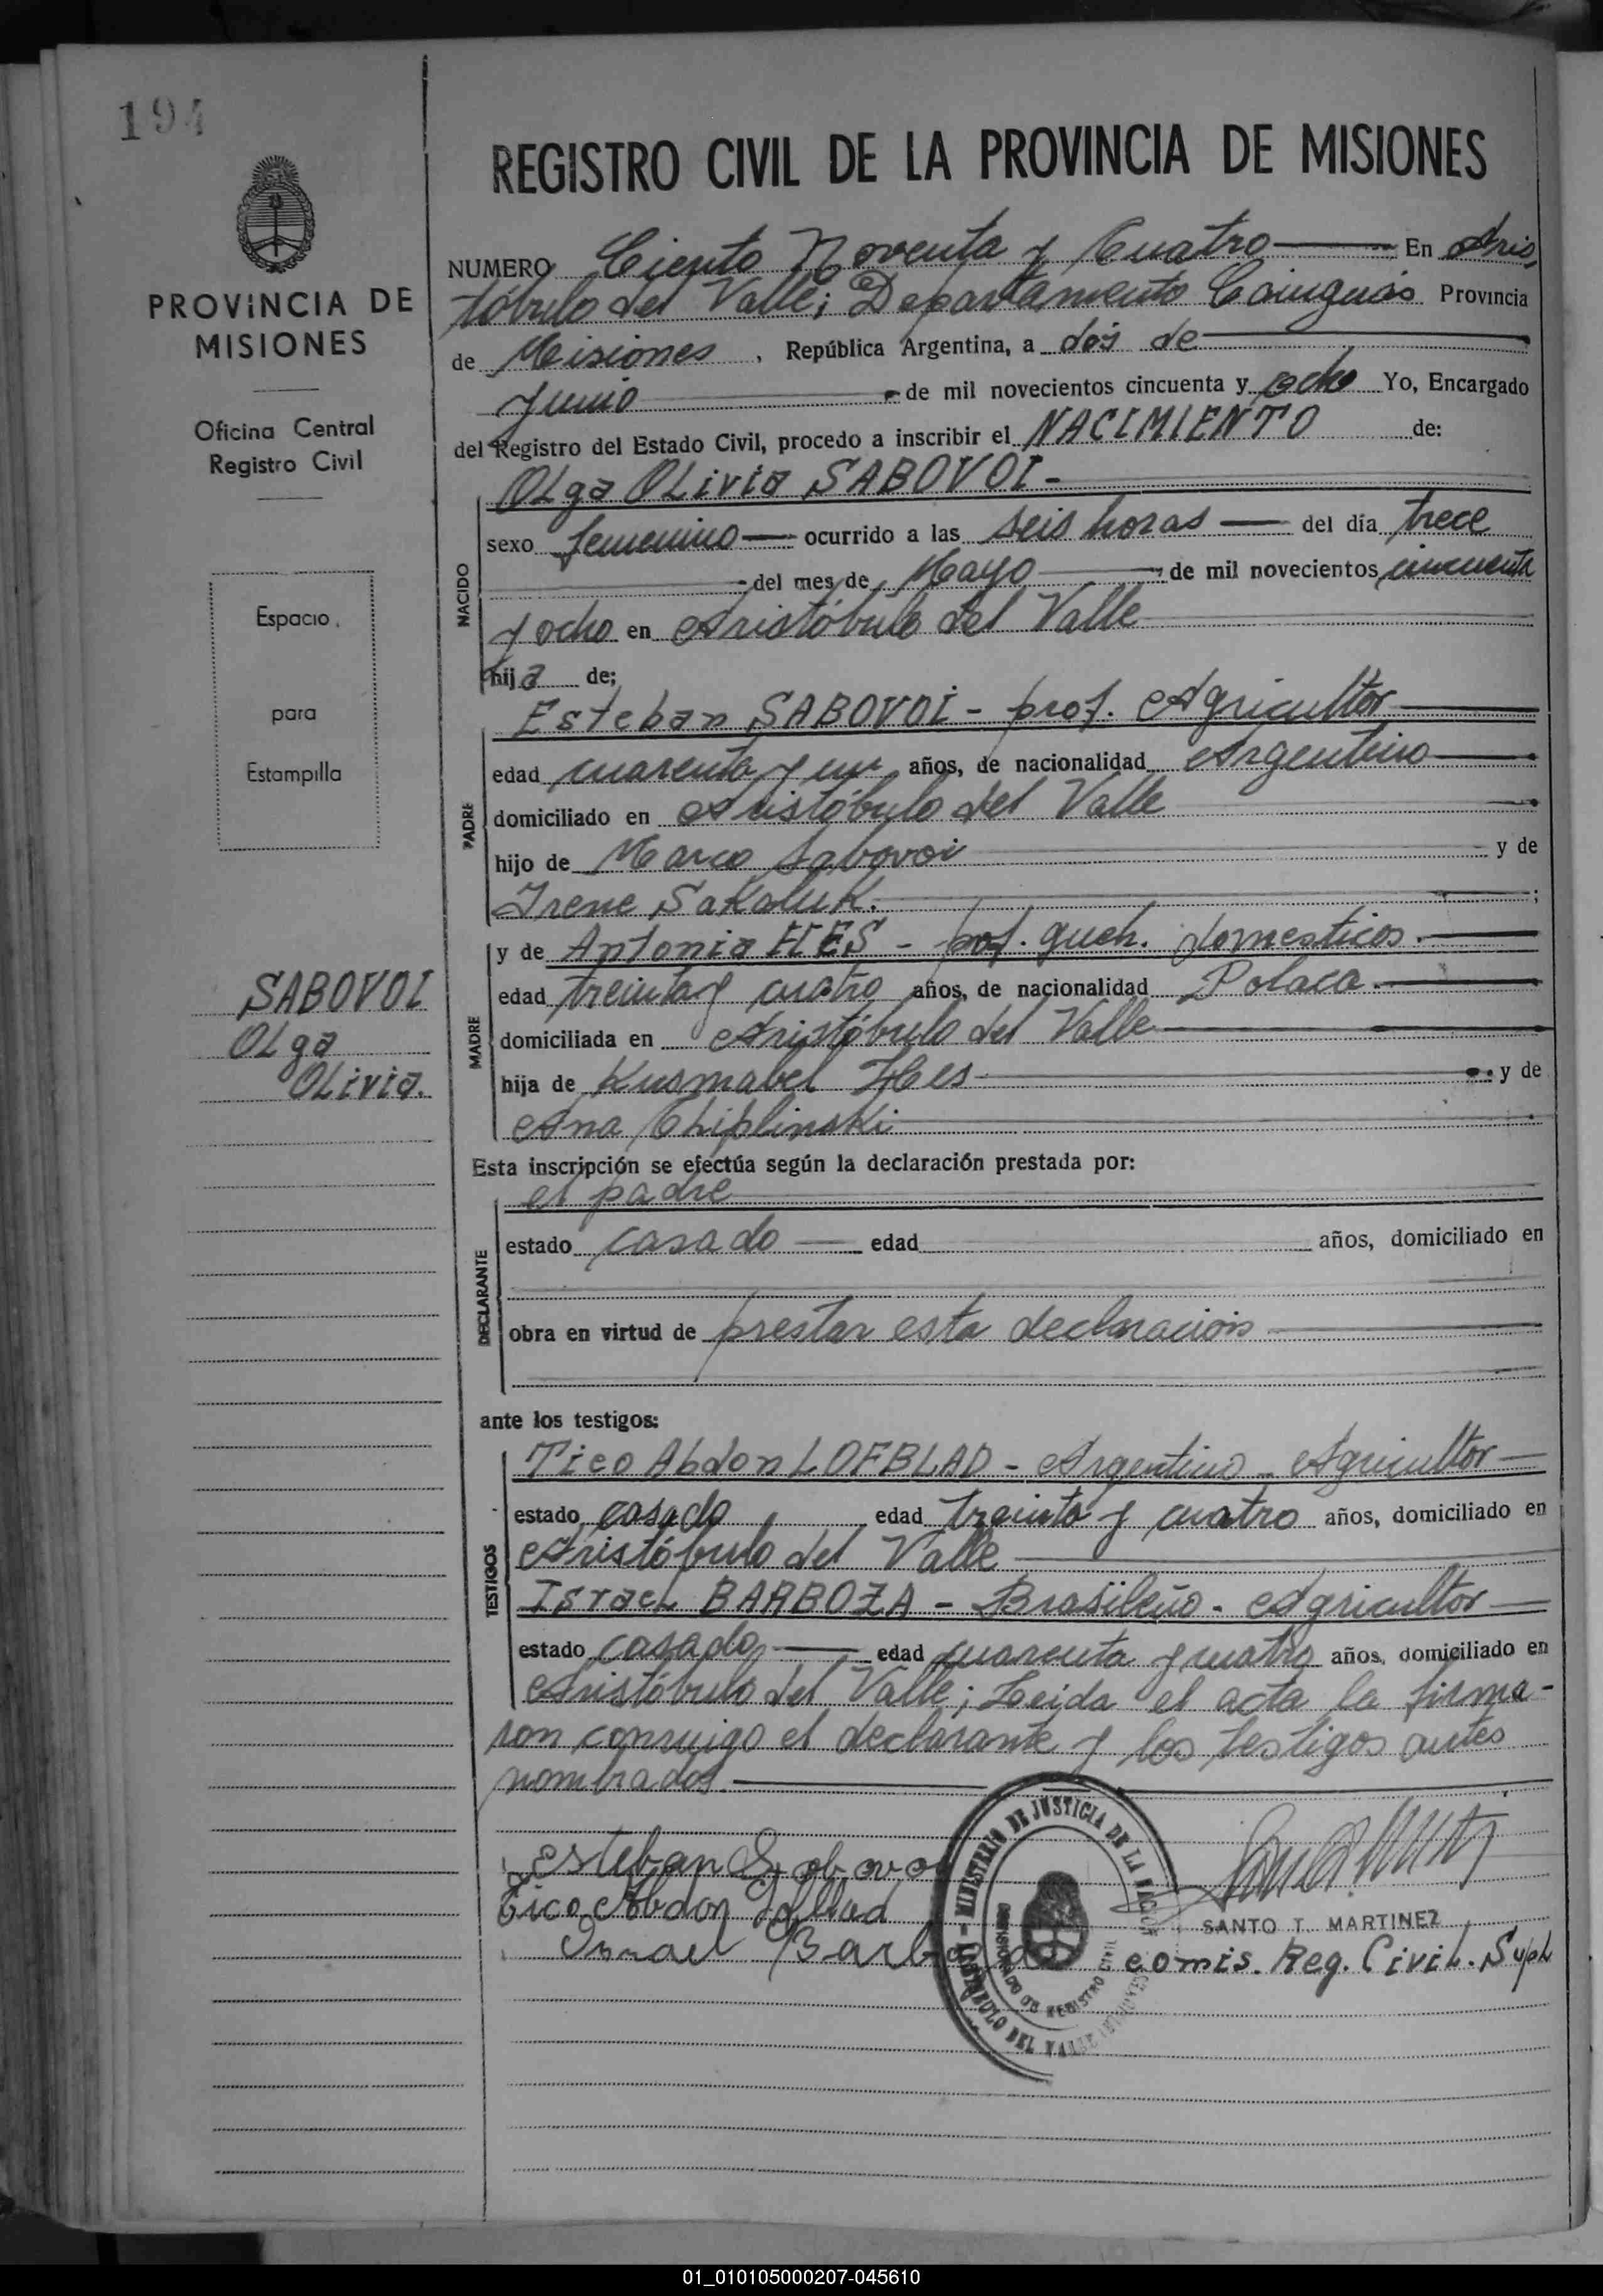 194
PROVINCIA DE
MISIONES
Oficina Central
Registro Civil
Espacio
para
Estampilla
SABOVOI
Olga
Olivia.
REGISTRO CIVIL DE LA PROVINCIA DE MISIONES
NUMERO Ciento Noventa y Cuatro En Aris-
tóbulo del Valle; Departamento Cainguás Provincia
de Misiones, República Argentina, a dos de
Junio de mil novecientos cincuenta y ocho Yo, Encargado
del Registro del Estado Civil, procedo a inscribir el NACIMIENTO de:
NACIDO
Olga Olivia SABOVOI-
sexo femenino ocurrido a las seis horas del día trece
del mes de Mayo de mil novecientos cincuenta
y ocho en Aristóbulo del Valle
hija de;
PADRE
Esteban SABOVOI - prof. Agricultor
edad cuarenta y un años, de nacionalidad Argentino
domiciliado en Aristóbulo del Valle
hijo de Marco Sabovoi y de
Irene Sakaluk. ;
MADRE
y de Antonia - prof. queh. domesticos.
edad treinta y cuatro años, de nacionalidad Polaca.
domiciliada en Aristóbulo del Valle
hija de Kusmabel y de
Ana Chiplinski
Esta inscripción se efectúa según la declaración prestada por:
DECLARANTE
el padre
estado casado edad años, domiciliado en
obra en virtud de prestar esta declaración
ante los testigos:
TESTIGOS
Tico Abdon LOFBLAD - Argentino - Agricultor
estado casado edad treinta y cuatro años, domiciliado en
Aristóbulo del Valle
Israel BARBOZA - Brasileño - Agricultor
estado casado edad cuarenta y cuatro años, domiciliado en
Aristóbulo del Valle; Leida el acta la firma-
ron conmigo el declarante y los testigos antes
nombrados.
Esteban Sabovoi
Tico Abdon Lofblad
Israel
MINISTERIO DE JUSTICIA DE LA NACION
ARISTOBULO DEL VALLE (MISIONES)
REGISTRO CIVIL
SANTO T. MARTINEZ
Comis. Reg. Civil. Supl
01_010105000207-045610